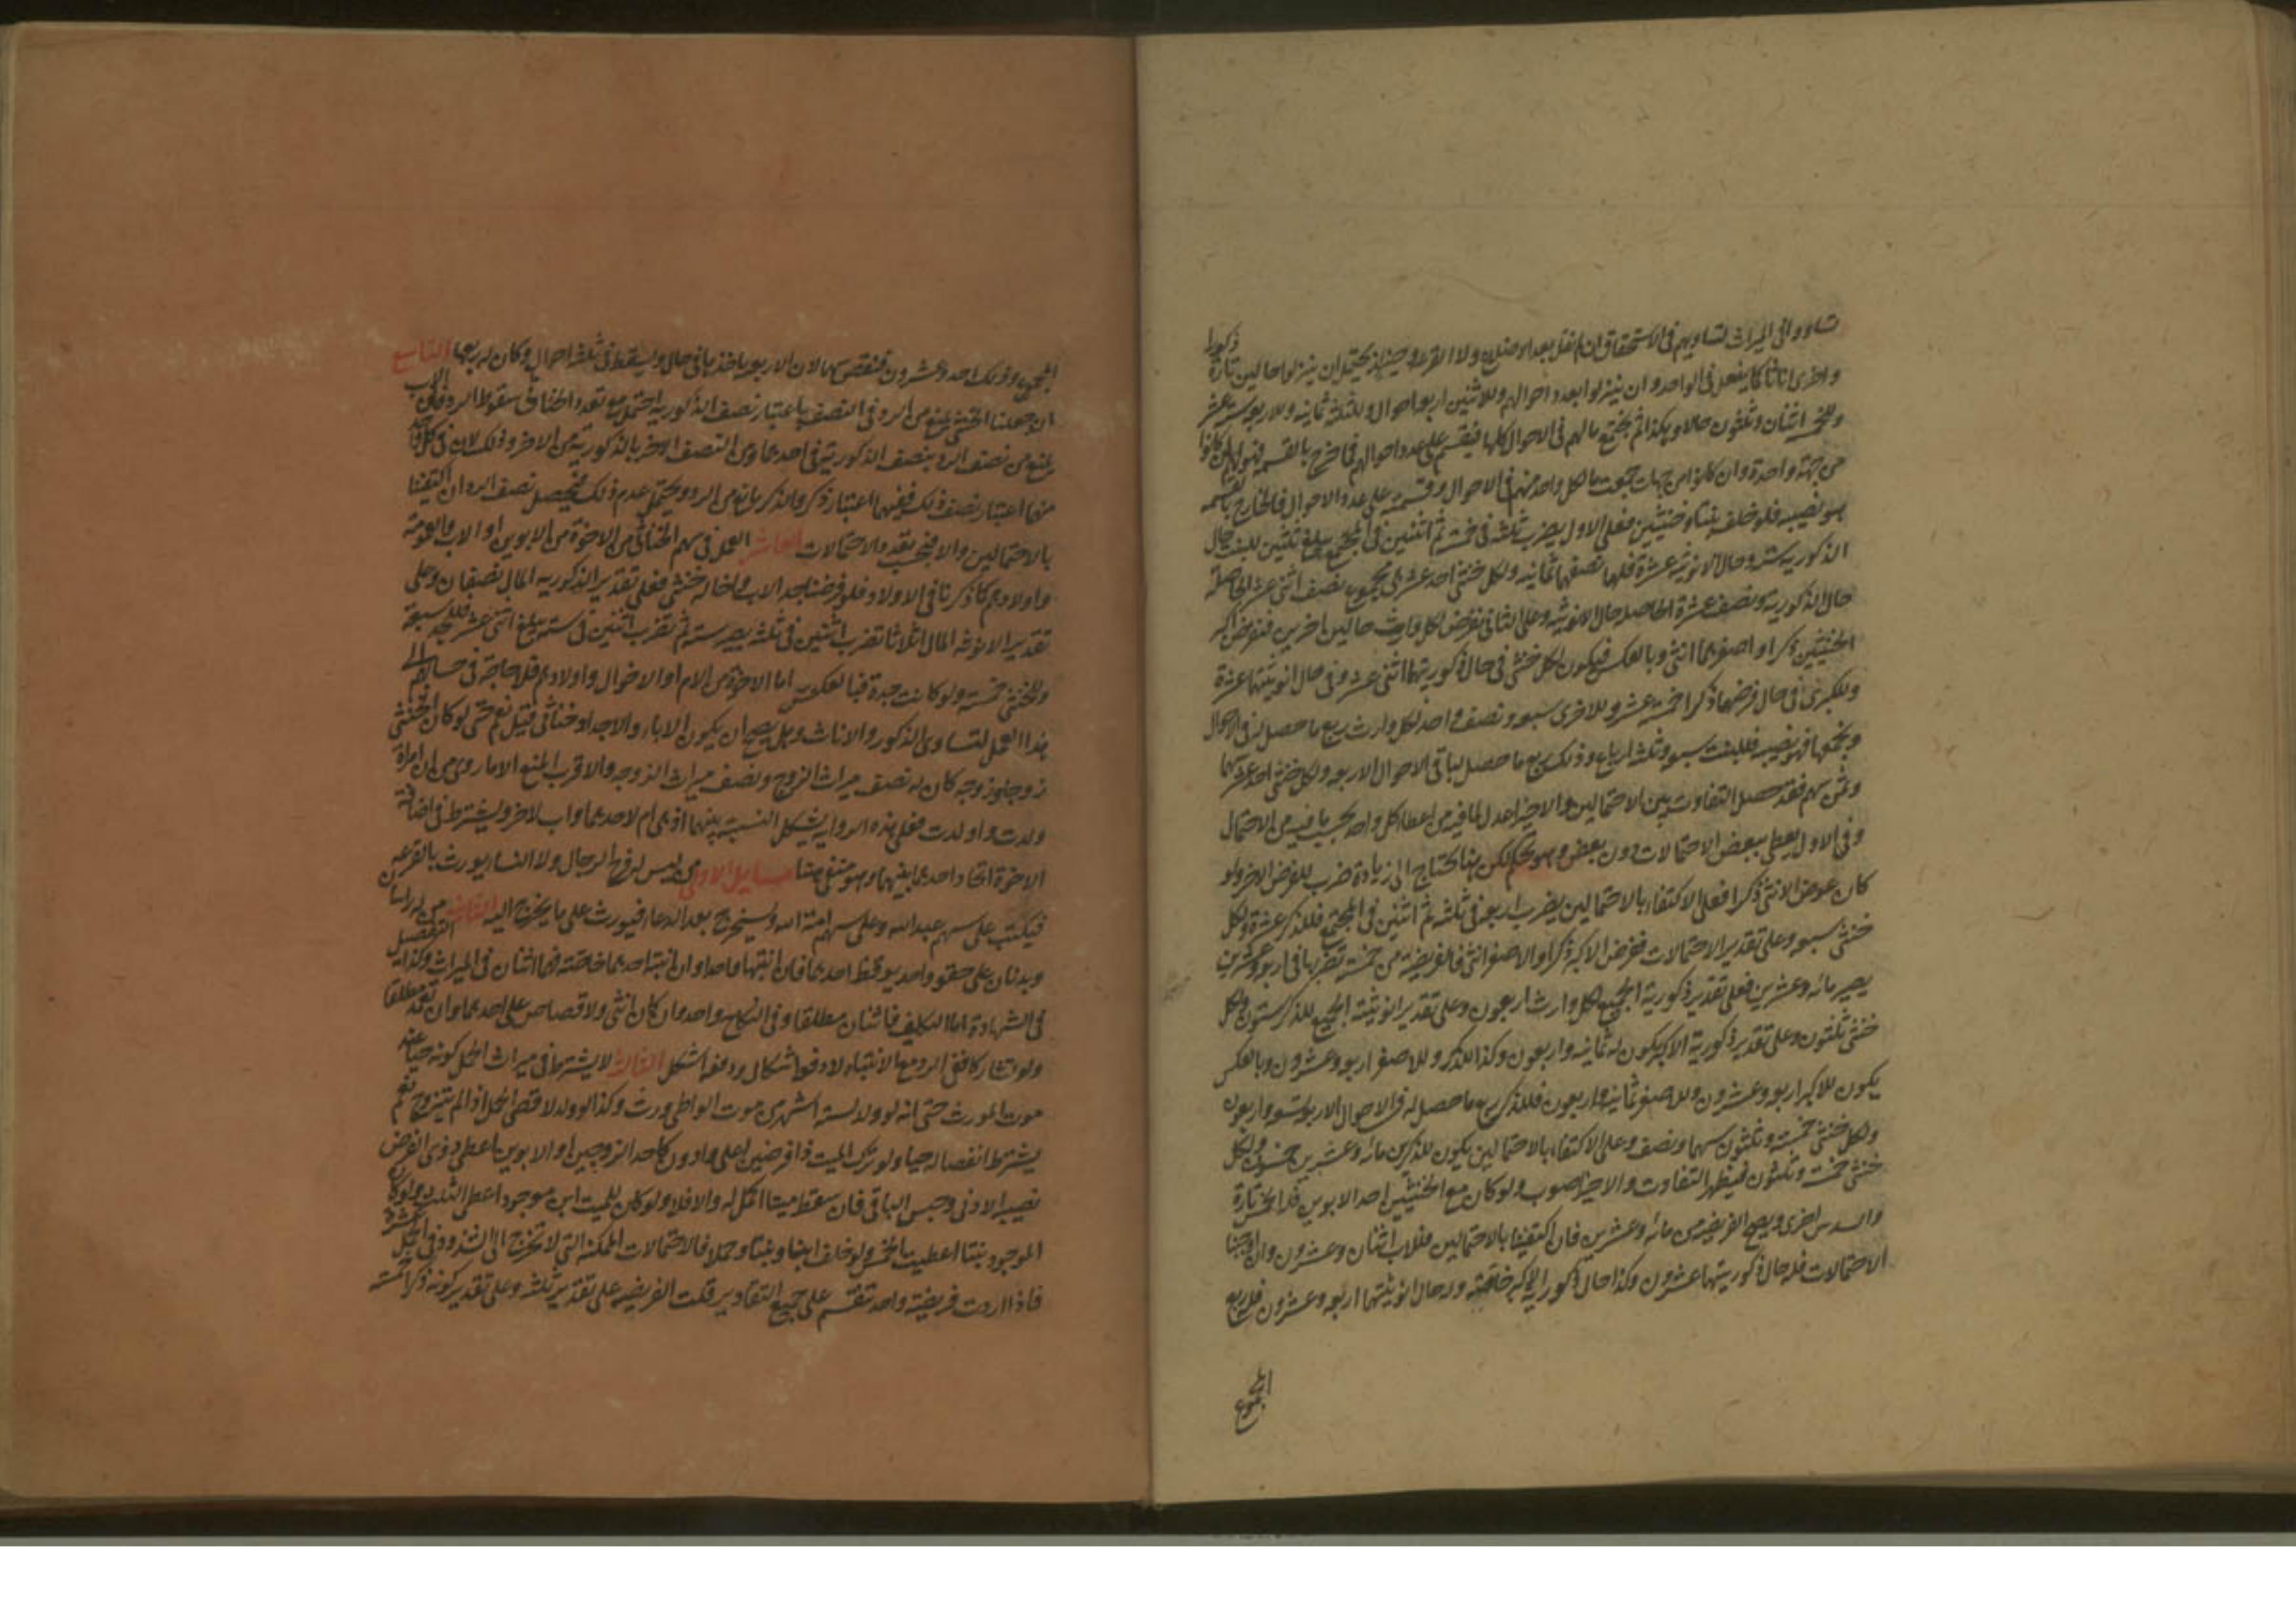 تساووا في الميراث لتساويهم في الاستحقاق ان لم نقل بعد الاضلاع ولا القرعة وحينئذ يحتمل ان ينزلوا حالين تارة ذكورا
واخرى اناثا كما يفعل في الواحد وان ينزلوا بعدد احوالهم وللاثنين اربعة احوال وللثلثة ثمانيه وللاربعه ستة عشر
وللخمسة اثنان وثلثون حالا وهكذا ثم يجمع مالهم في الاحوال كلها فيقسم على عدد احوالهم فما خرج بالقسمة فهو لهم ان كانوا
من جهة واحدة وان كانوا من جهات جمعت ما لكل واحد منهم في الاحوال وقسمته على عدد الاحوال فالخارج بالقسمه
هو نصيبه فلو خلف بنتا وخنثيين فعلى الاول يضرب ثلثة في خمسة ثم اثنين في المجتمع يبلغ ثلثين للبنت حال
الذكوريه ستة وحال الانوثيه عشرة فلها نصفهما ثمانيه ولكل خنثى احد عشر هي مجموع نصف اثنى عشر الحاصلة
حال الذكوريه ونصف عشرة الحاصل حال الانوثيه وعلى الثاني نفرض لكل وارث حالين اخرين فنفرض اكبر
الخنثيين ذكرا واصغرهما انثى وبالعكس فيكون لكل خنثى في حال ذكوريتهما اثنى عشر وفي حال انوثيتهما عشرة
وللكبرى في حال فرضها ذكرا خمسة عشر وللاخرى سبعه ونصف واحد لكل وارث ربع ما حصل له في الاحوال
وبجمعها فهو نصيبه فللبنت سبعه وثلثه ارباع وذلك ربع ما حصل لها في الاحوال الاربعه ولكل خنثى احد عشر سهما
وثمن سهم فقد حصل التفاوت بين الاحتمالين والاخير اعدل لما فيه من اعطاء كل واحد بحسب ما فيه من الاحتمال
وفي الاول يعطى ببعض الاحتمالات دون بعض وهو تحكم لكن هنا يحتاج الى زيادة ضرب للفرض الاخر ولو
كان عوض الانثى ذكرا فعلى الاكتفاء بالاحتمالين يضرب اربعه في ثلثه ثم اثنين في المجتمع فللذكر عشرة ولكل
خنثى سبعه وعلى تقدير الاحتمالات ففرض الاكبر ذكرا والاصغر انثى فالفريضه من خمسة تضربها في اربعه وعشرين
يصير مائه وعشرين فعلى تقدير ذكورية الجميع لكل وارث اربعون وعلى تقدير انوثيته الجميع للذكر ستون ولكل
خنثى ثلثون وعلى تقدير ذكورية الاكبر يكون له ثمانيه واربعون وكذا للذكر وللاصغر اربعه وعشرون وبالعكس
يكون للاكبر اربعه وعشرون وللاصغر ثمانيه واربعون فللذكر ربع ما حصل له في الاحوال الاربعه تسعه واربعون
ولكل خنثى خمسة وثلثون سهما ونصف وعلى الاكتفاء بالاحتمالين يكون للذكر من مائه وعشرين خمسون ولكل
خنثى خمسة وثلثون فيظهر التفاوت والاخير اصوب ولو كان مع الخنثيين احد الابوين فله الخمس تارة
والسدس اخرى ويصح الفريضه من مائه وعشرين فان اكتفينا بالاحتمالين فللاب اثنان وعشرون وان اوجبنا
الاحتمالات فله حال ذكوريتهما عشرون وكذا حال ذكورية الاكبر خاصة وله حال انوثيتهما اربعه وعشرون فله ربع
المجموع
المجموع وذلك احد وعشرون فنقص سهما لان الاربعه ياخذها في حال ويسقط في ثلثه احوال وكان له ربعها التاسع
ان جعلنا الخنثى يمنع من الرد في النصف باعتبار نصف الذكوريه احتمل مع تعدد الخناثى سقوط الرد على الاب
يمنع من نصف الرد بنصف الذكورية في احدهما وفي النصف الاخر بالذكورية من الاخر وذلك لان في كل واحد
منهما اعتبار نصف ذكر ففيهما اعتبار ذكر والذكر مانع من الرد ويحتمل عدم ذلك فيحصل نصف الرد ان اكتفينا
بالاحتمالين والا فبحسب تعدد الاحتمالات العاشر العمل في سهم الخناثى من الاخوة من الابوين او الاب والعمومة
واولادهم كما ذكرنا في الاولاد فلو فرضنا جد الاب واخا له خنثى فعلى تقدير الذكوريه المال نصفان وعلى
تقدير الانوثه المال اثلاثا تضرب اثنين في ثلثه يصير سته ثم تضرب اثنين في سته يبلغ اثنى عشر للجد سبعة
وللخنثى خمسة ولو كانت جدة فبالعكس اما الاخوة من الام او الاخوال واولادهم فلا حاجة في حسابهم الى
هذا العمل لتساوي الذكور والاناث وهل يصح ان يكون الاباء والاجداد خناثى قيل نعم حتى لو كان الخنثى
زوجا او زوجه كان له نصف ميراث الزوج ونصف ميراث الزوجه والاقرب المنع الا ما روي من ان امراة
ولدت واولدت فعلى هذه الروايه يشكل النسبة بينهما اذ هي ام لاحدهما واب للاخر ويشترط في اضافة
الاخوة اتحاد احدهما بينهما وهو منتفي هنا مسايل الاولى من ليس له فرج الرجال ولا النساء يورث بالقرعه
فيكتب على سهم عبدالله وعلى سهم امة الله ويستخرج بعد الدعاء فيورث على ما يخرج اليه الثانيه من له راسان
وبدنان على حقو واحد يوقظ احدهما فان انتبها فواحد وان انتبه احدهما خاصة فهما اثنان في الميراث وكذا التفصيل
في الشهادة اما التكليف فاثنان مطلقا وفي النكاح واحد وان كان انثى ولا قصاص على احدهما وان تعمد مطلقا
ولو تشاركا ففي الرد مع الانتباه لا دفعة اشكال ودفعه اشكل الثالثه لا يشترط في ميراث الحمل كونه حيا عند
موت المورث حتى انه لو ولد لستة اشهر من موت الواطي ورث وكذا لو ولد لاقصى الحمل اذا لم يتزوج نعم
يشترط انفصاله حيا ولو ترك الميت ذا فرضين اعلى وادون كاحد الزوجين او الابوين اعطى ذوى الفرض
نصيبه الادنى وحبس الباقي فان سقط ميتا اكمل له والا فلا ولو كان للميت ابن موجود اعطى الثلث ولو كان
الموجود بنتا اعطيت الخمس ولو خلف ابنا وبنتا وحملا فالاحتمالات الممكنه التي لا تخرج الى الشذوذ في الحمل عشرة
فاذا اردت فريضة واحدة تنقسم على جميع التقادير قلت الفريضه على تقدير ثلثة وعلى تقدير كونه ذكرا خمسة